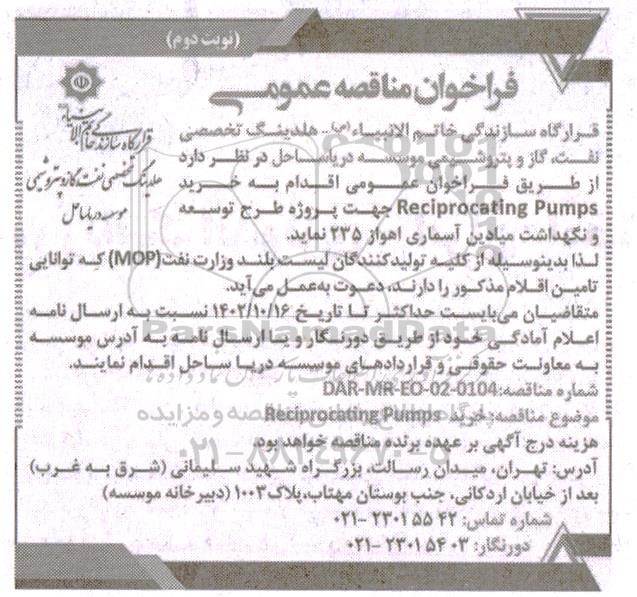 (نوبت دوم)
فراخوان مناقصه عمومی
قرارگاه سازندگی خاتم الانبیاء (ص)- هلدینگ تخصصی
نفت، گاز و پتروشیمی موسسه دریاساحل در نظر دارد
از طریق فراخوان عمومی اقدام به خرید
Reciprocating Pumps جهت پروژه طرح توسعه
و نگهداشت میادین آسماری اهواز ۲۳۵ نماید.
لذا بدینوسیله از کلیه تولیدکنندگان لیست بلند وزارت نفت(MOP) که توانایی
تامین اقلام مذکور را دارند، دعوت به‌عمل می‌آید.
متقاضیان می‌بایست حداکثر تا تاریخ ۱۴۰۲/۱۰/۱۶ نسبت به ارسال نامه
اعلام آمادگی خود از طریق دورنگار و یا ارسال نامه به آدرس موسسه
به معاونت حقوقی و قراردادهای موسسه دریا ساحل اقدام نمایند.
شماره مناقصه:DAR-MR-EO-02-0104
موضوع مناقصه: خرید Reciprocating Pumps
هزینه درج آگهی بر عهده برنده مناقصه خواهد بود.
آدرس: تهران، میدان رسالت، بزرگراه شهید سلیمانی (شرق به غرب)
بعد از خیابان اردکانی، جنب بوستان مهتاب، پلاک۱۰۰۳ (دبیرخانه موسسه)
شماره تماس: ۴۲ ۵۵ ۲۳۰۱ -۰۲۱
دورنگار: ۰۳ ۵۴ ۲۳۰۱ -۰۲۱
قرارگاه سازندگی خاتم الانبیاء
هلدینگ تخصصی نفت، گاز و پتروشیمی
موسسه دریا ساحل
ParsNamadData
۰۲۱-۸۸۳۴۹۶۷۰-۵